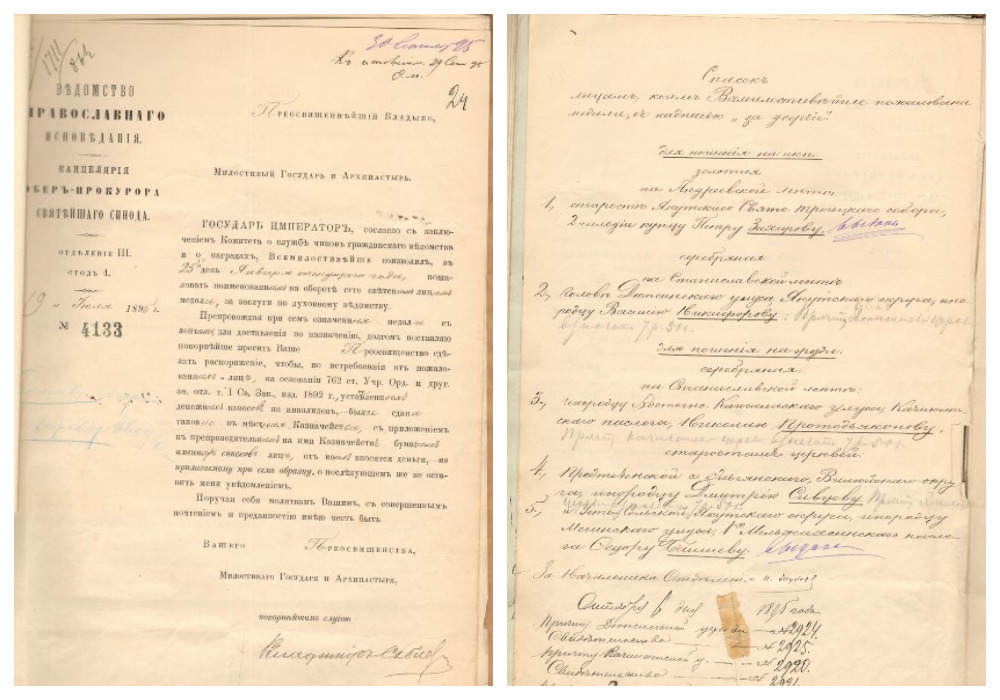 30 Сент. 95
24
ВѢДОМСТВО
ПРАВОСЛАВНАГО
ИСПОВѢДАНІЯ.
КАНЦЕЛЯРІЯ
ОБЕРЪ-ПРОКУРОРА
СВЯТѢЙШАГО СИНОДА.
ОТДѢЛЕНІЕ III.
СТОЛЪ 4.
19 Іюля 1895 г.
№ 4133
Преосвященнѣйшій Владыко,
Милостивый Государь и Архипастырь.
ГОСУДАРЬ ИМПЕРАТОРЪ, согласно съ заклю-
ченіемъ Комитета о службѣ чиновъ гражданскаго вѣдомства
и о наградахъ, Всемилостивѣйше соизволилъ, въ
25 день Января текущаго года, пожа-
ловать поименованнымъ на оборотѣ сего свѣтскимъ лицамъ
медали, за заслуги по духовному вѣдомству.
Препровождая при семъ означенныя медали съ
лентами для доставленія по назначенію, долгомъ поставляю
покорнѣйше просить Ваше Преосвященство сдѣ-
лать распоряженіе, чтобы, по истребованіи отъ пожало-
ванныхъ лицъ, на основаніи 762 ст. Учр. Орд. и друг.
зн. отл. т. I Св. Зак., изд. 1892 г., установленныхъ
денежныхъ взносовъ на инвалидовъ, были сданы
таковые въ мѣстныя Казначейства, съ приложеніемъ
къ препроводительнымъ на имя Казначействъ бумагамъ
именныхъ списковъ лицъ, отъ коихъ вносятся деньги, по
прилагаемому при семъ образцу, о послѣдующемъ же не оста-
вить меня увѣдомленіемъ.
Поручая себя молитвамъ Вашимъ, съ совершеннымъ
почтеніемъ и преданностію имѣю честь быть
Вашего Преосвященства,
Милостиваго Государя и Архипастыря,
покорнѣйшимъ слугою
Владиміръ Саблеръ
Списокъ
лицамъ, коимъ Всемилостивѣйше пожалованы
медали, съ надписью „за усердіе"
для ношенія на шеѣ:
золотыя
на Андреевской лентѣ,
1, старостѣ Якутскаго Свято-Троицкаго собора,
2 гильдіи купцу Петру Захарову. выдана
серебряныя
на Станиславской лентѣ
2, Головѣ Дюпсинскаго улуса, Якутскаго округа, ино-
родцу Василію Никифорову:
для ношенія на груди:
серебряныя
на Станиславской лентѣ:
3, инородцу Восточно-Кангаласкаго улуса, Качикат-
скаго наслега, Николаю Протодьяконову,
старостамъ церквей:
4, Предтеченской с. Эльгянскаго, Вилюйскаго окру-
га, инородцу Димитрію Сивцеву
5, и Усть-Сольской, Якутскаго округа, инородцу
Мегинскаго улуса, 1го Мельжахсинскаго насле-
га Ѳедору Гашиеву. выдана
За Начальника Отдѣленія
Октября 6 дня 1895 года
Причту Дюпсинской церкви — № 2924.
Свидѣтельство — № 2925.
Причту Качикатской ц. — № 2920.
Свидѣтельство — № 2921